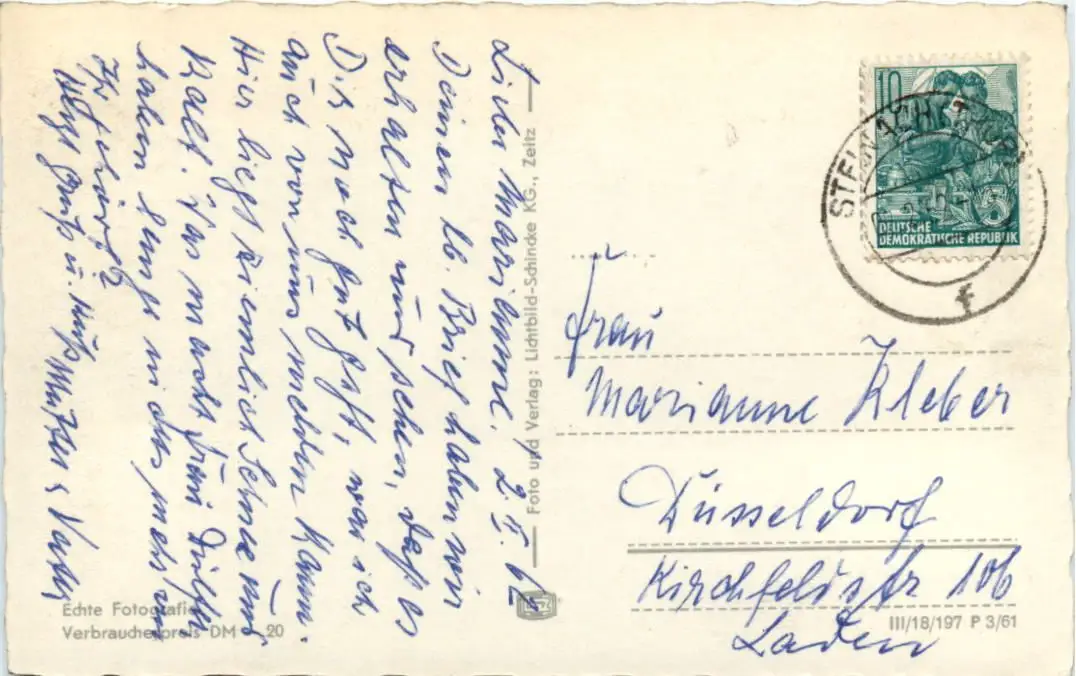 Liebe Marianne! 2.II.62
Deinen lb. Brief haben wir
erhalten und sehen, daß es
Dir noch gut geht, was ich
auch von uns melden kann.
Hier liegt ziemlich Schnee und
kalt. Was macht Frau
haben lange nichts mehr von
Ihr gehört?
Herzl. Gruß u. Kuß Mutter & Vater
Echte Fotografie
Verbraucherpreis DM 20
Foto und Verlag: Lichtbild-Schincke KG., Zeitz
10
DEUTSCHE
DEMOKRATISCHE REPUBLIK
5
f
Frau
Marianne Kleber
Düsseldorf
Kirchfeldstr 106
Laden
III/18/197 P 3/61